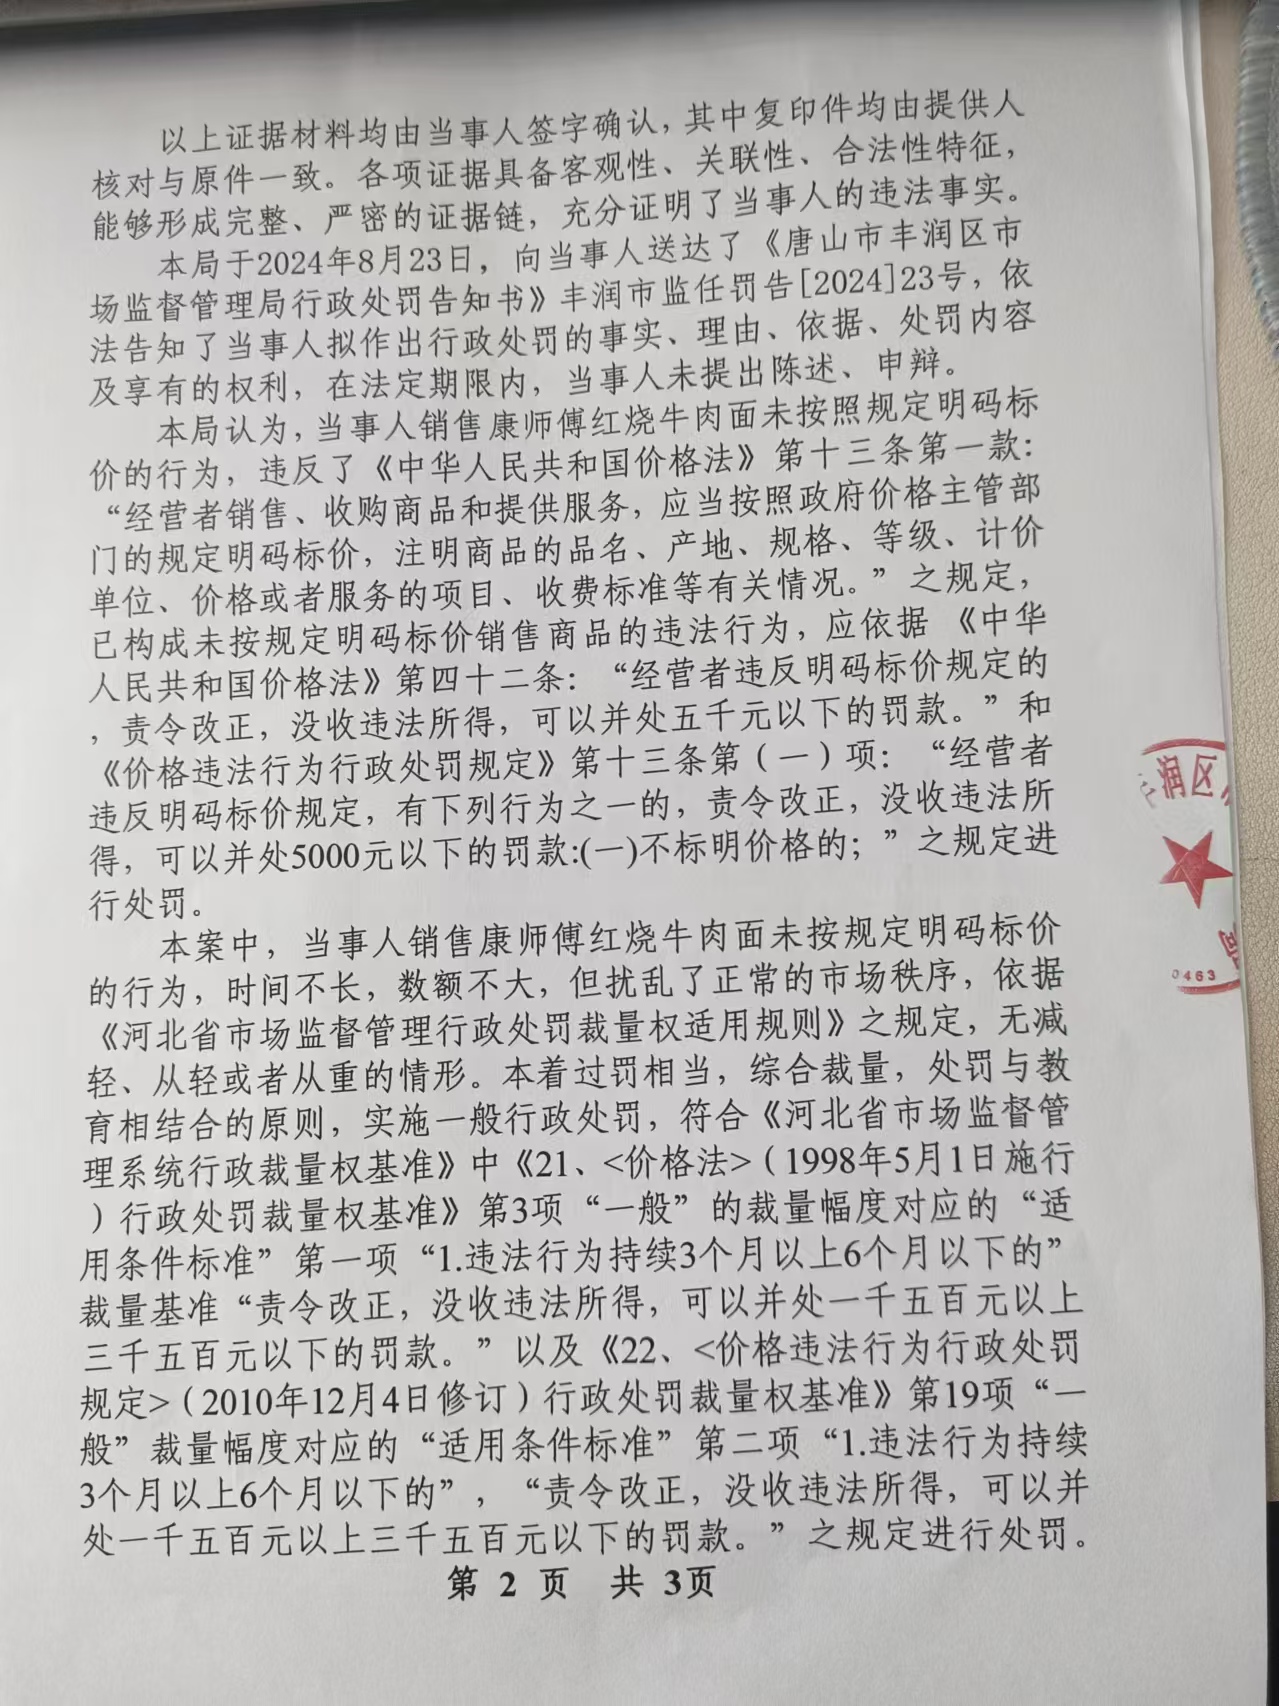 以上证据材料均由当事人签字确认，其中复印件均由提供人
核对与原件一致。各项证据具备客观性、关联性、合法性特征，
能够形成完整、严密的证据链，充分证明了当事人的违法事实。
本局于2024年8月23日，向当事人送达了《唐山市丰润区市
场监督管理局行政处罚告知书》丰润市监任罚告[2024]23号，依
法告知了当事人拟作出行政处罚的事实、理由、依据、处罚内容
及享有的权利，在法定期限内，当事人未提出陈述、申辩。
本局认为，当事人销售康师傅红烧牛肉面未按照规定明码标
价的行为，违反了《中华人民共和国价格法》第十三条第一款：
“经营者销售、收购商品和提供服务，应当按照政府价格主管部
门的规定明码标价，注明商品的品名、产地、规格、等级、计价
单位、价格或者服务的项目、收费标准等有关情况。”之规定，
已构成未按规定明码标价销售商品的违法行为，应依据 《中华
人民共和国价格法》第四十二条：“经营者违反明码标价规定的
，责令改正，没收违法所得，可以并处五千元以下的罚款。”和
《价格违法行为行政处罚规定》第十三条第（一）项：“经营者
违反明码标价规定，有下列行为之一的，责令改正，没收违法所
得，可以并处5000元以下的罚款:(一)不标明价格的；”之规定进
行处罚。
本案中，当事人销售康师傅红烧牛肉面未按规定明码标价
的行为，时间不长，数额不大，但扰乱了正常的市场秩序，依据
《河北省市场监督管理行政处罚裁量权适用规则》之规定，无减
轻、从轻或者从重的情形。本着过罚相当，综合裁量，处罚与教
育相结合的原则，实施一般行政处罚，符合《河北省市场监督管
理系统行政裁量权基准》中《21、<价格法>（1998年5月1日施行
）行政处罚裁量权基准》第3项“一般”的裁量幅度对应的“适
用条件标准”第一项“1.违法行为持续3个月以上6个月以下的”
裁量基准“责令改正，没收违法所得，可以并处一千五百元以上
三千五百元以下的罚款。”以及《22、<价格违法行为行政处罚
规定>（2010年12月4日修订）行政处罚裁量权基准》第19项“一
般”裁量幅度对应的“适用条件标准”第二项“1.违法行为持续
3个月以上6个月以下的”，“责令改正，没收违法所得，可以并
处一千五百元以上三千五百元以下的罚款。”之规定进行处罚。
第 2 页 共 3页
润区
0463